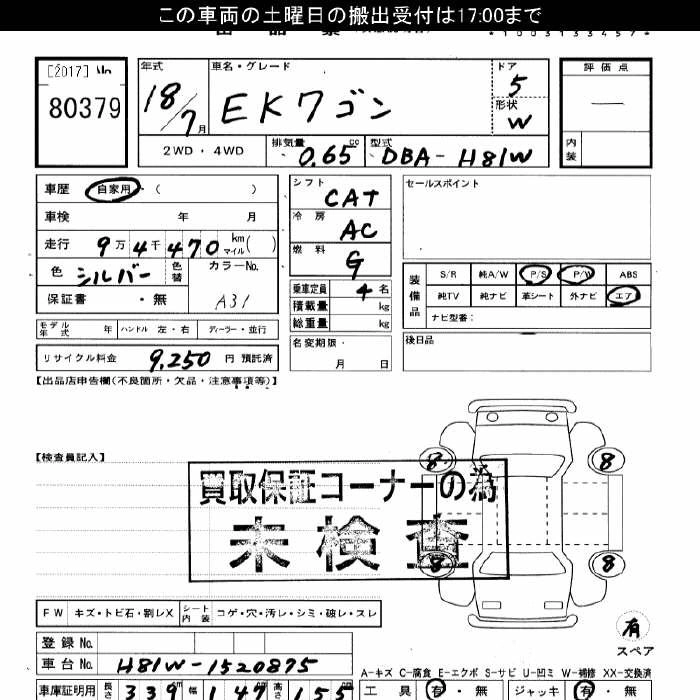 この車両の土曜日の搬出受付は17:00まで
*1003133457*
[2017] No
80379
年式
18/7月
車名・グレード
EKワゴン
ドア
5
形状
W
評価点
内装
2WD・4WD
排気量
0.65 cc
型式
DBA-H81W
車歴 自家用 ( )
車検 年 月
走行 9万4千470 km マイル( )
色 シルバー 色替
カラーNo.
A31
保証書 ・無
モデル年式 年 ハンドル 左・右 ディーラー・並行
リサイクル料金 9,250 円 預託済
シフト
CAT
冷房
AC
燃料
G
乗車定員 4名
積載量 kg
総重量 kg
名変期限・
月 日
セールスポイント
装備品
S/R 純A/W P/S P/W ABS
純TV 純ナビ 革シート 外ナビ エア
ナビ型番:
後日品
【出品店申告欄(不良箇所・欠品・注意事項等)】
【検査員記入】
買取保証コーナーの為
未検査
8 8
8 8
有
スペア
FW キズ・トビ石・割レX シート内装 コゲ・穴・汚レ・シミ・破レ・スレ
登録No.
車台No. H81W-1520875
車庫証明用 長さ 339 幅 147 高さ 155
A-キズ C-腐食 E-エクボ S-サビ U-凹ミ W-補修 XX-交換済
工具 有・無 ジャッキ 有・無